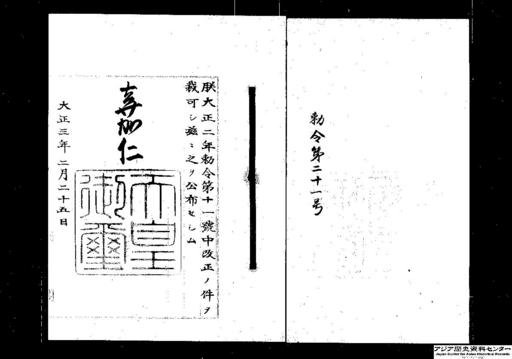 勅令第二十一号
朕大正二年勅令第十一號中改正ノ件ヲ
裁可シ茲ニ之ヲ公布セシム
嘉仁
天皇
御璽
大正三年二月二十五日
アジア歴史資料センター
Japan Center for Asian Historical Records